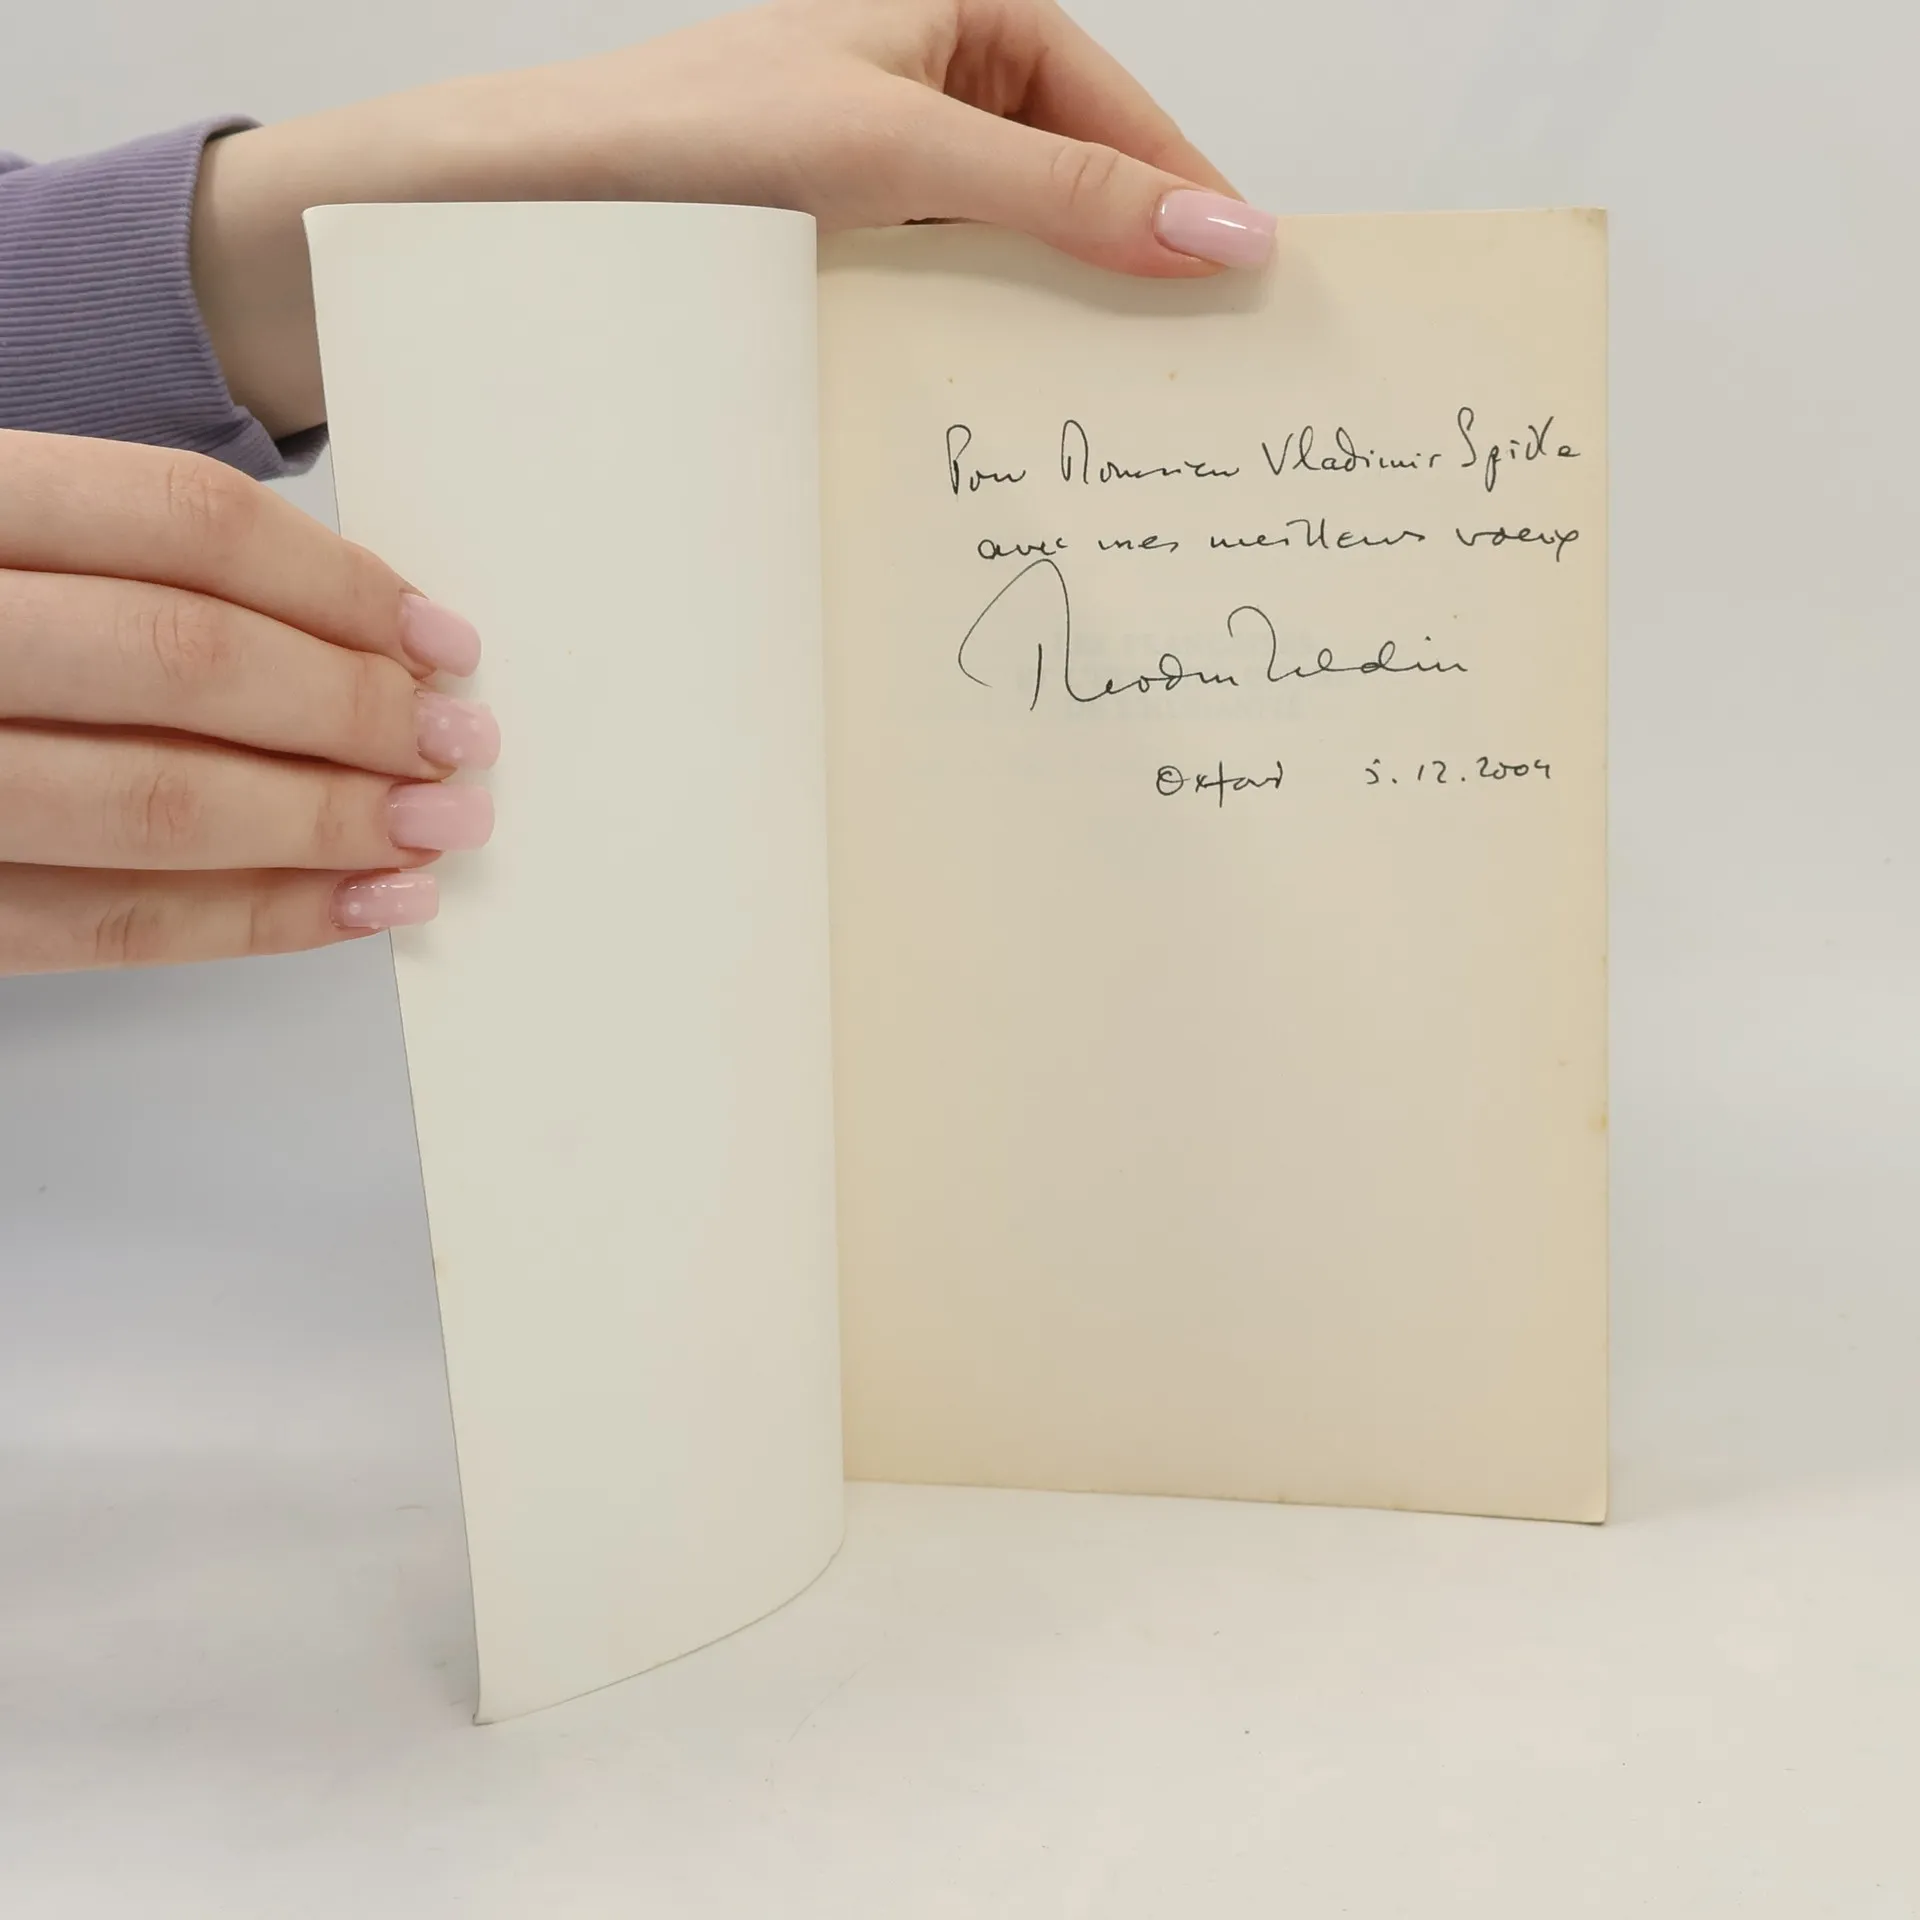 Pour Monsieur Vladimir Spidla
avec mes meilleurs voeux
Theodore Zeldin
Oxford 5.12.2004